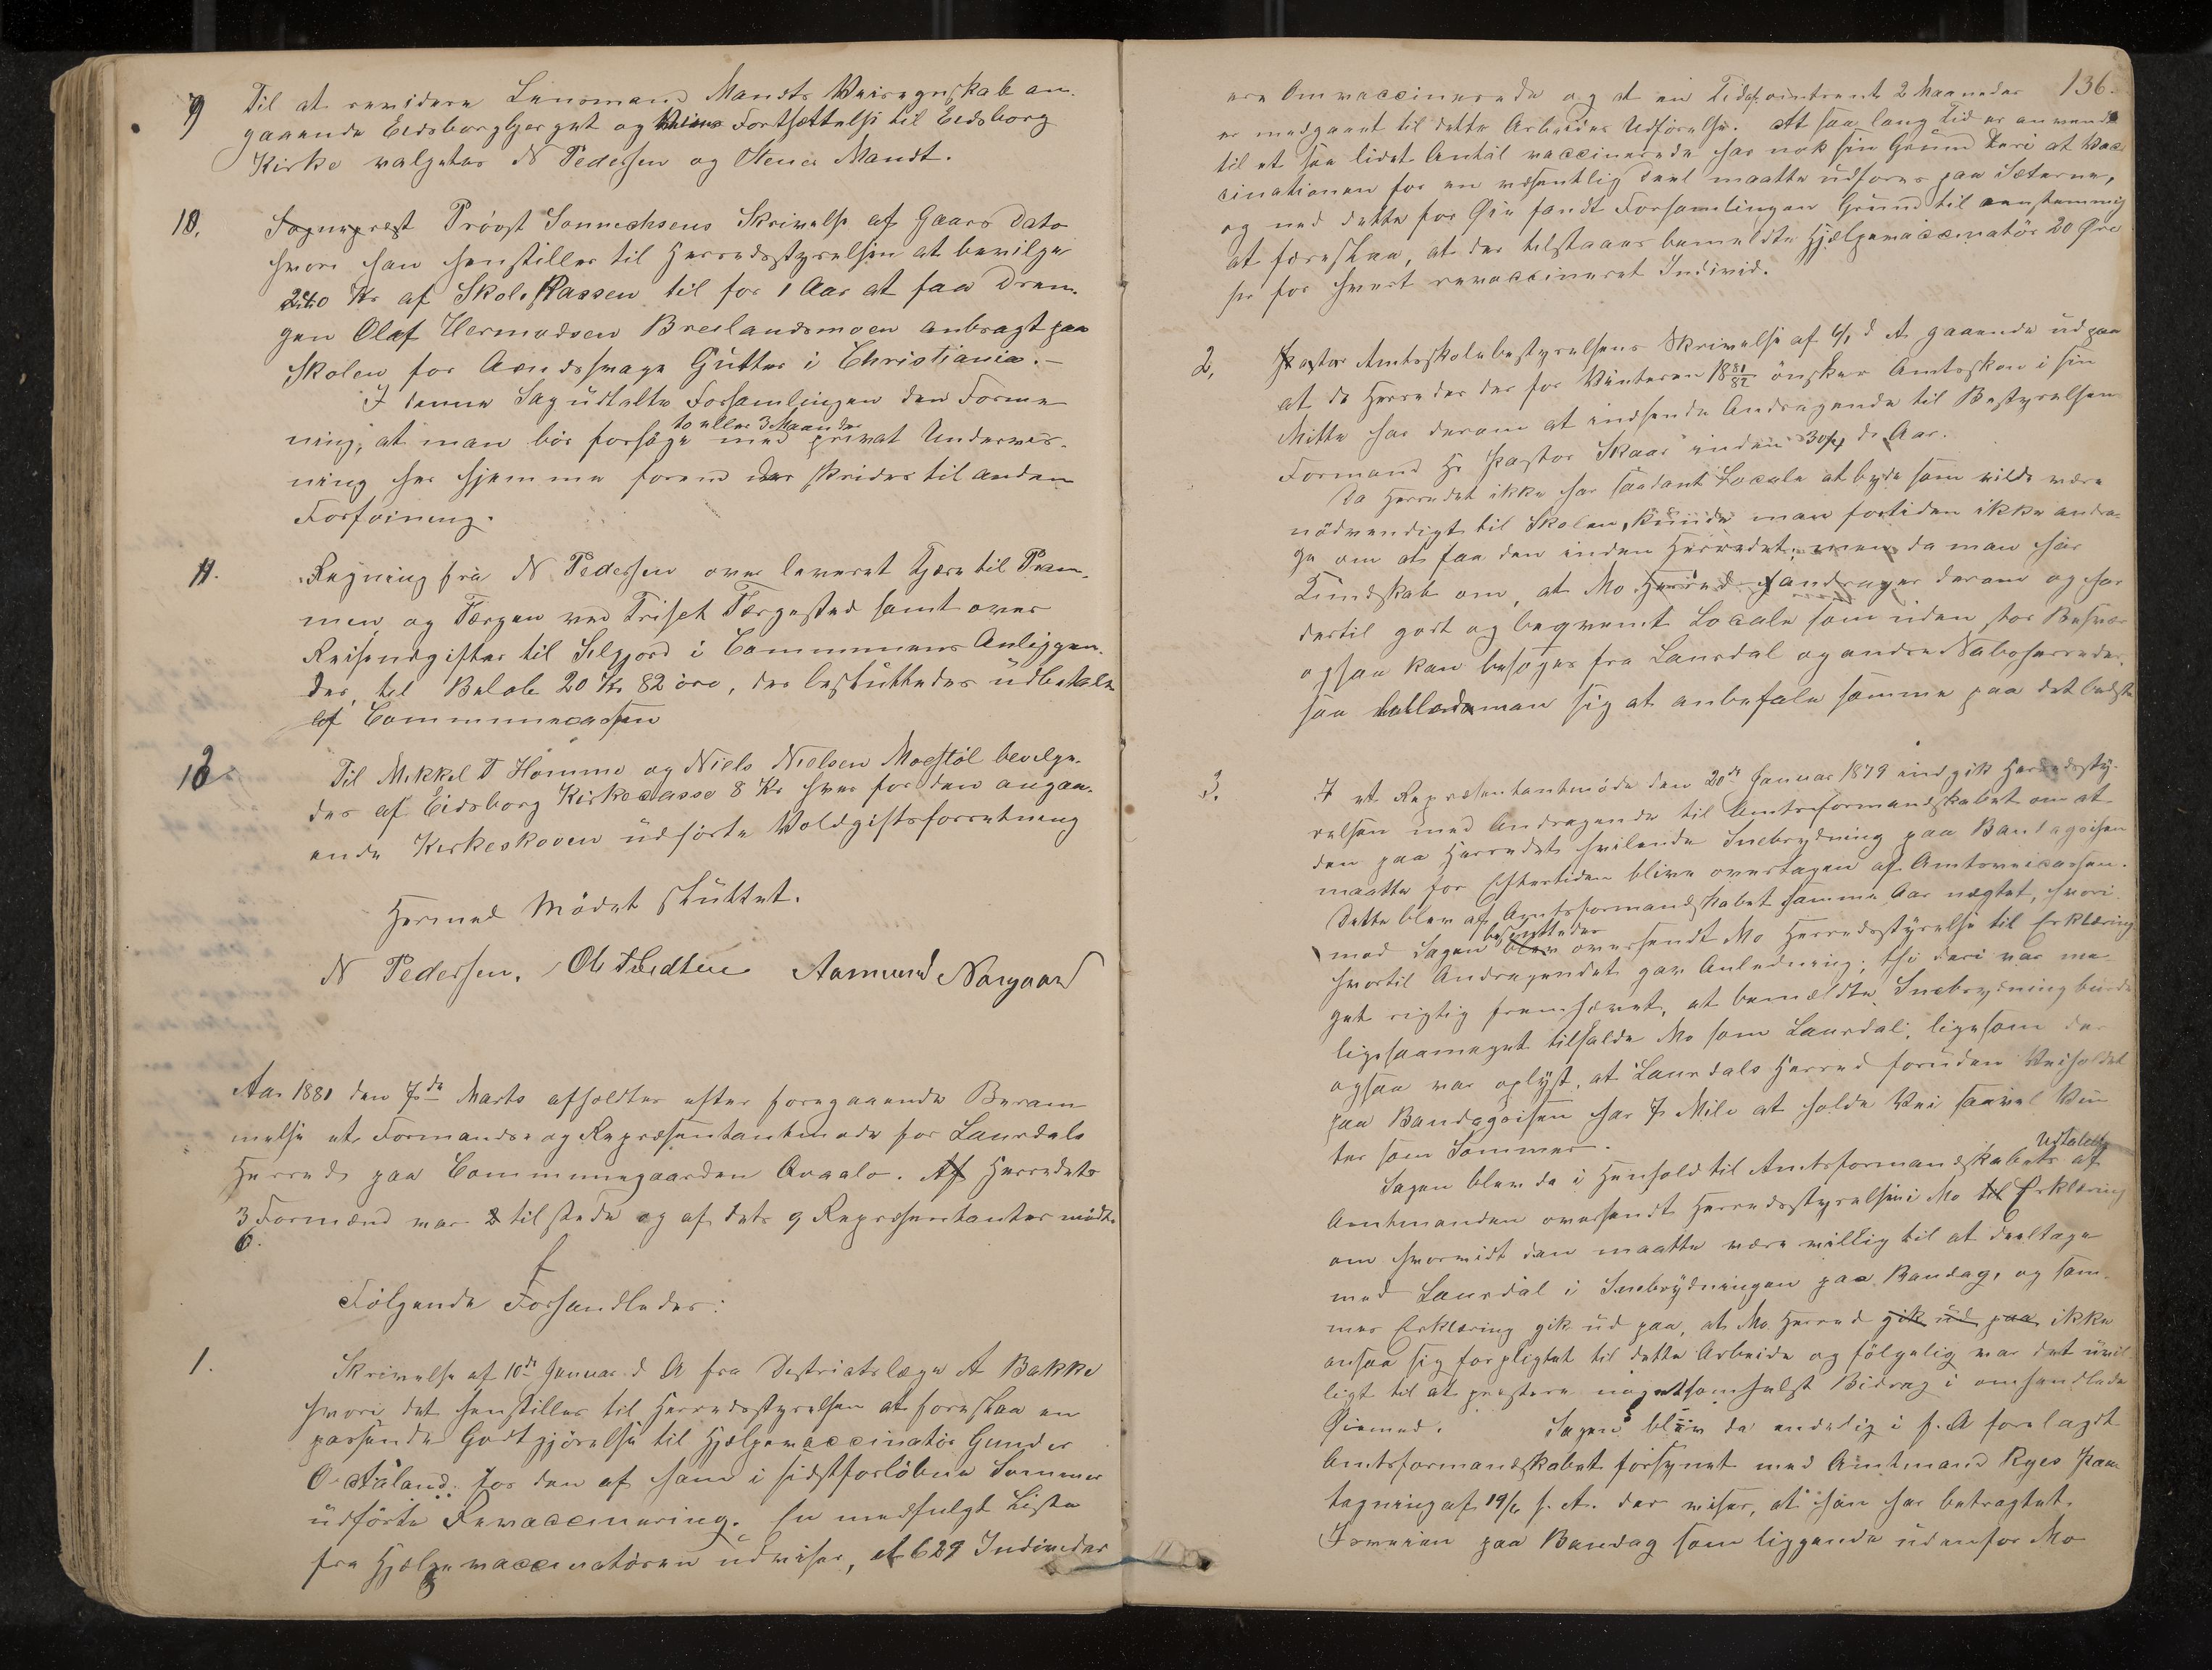 9 Til at revidere Lensmand Mandts Veiregnskab an-
gaaende Eidsborgbjerget og Veiens Fortsættelse til Eidsborg
Kirke valgtes N Pedersen og Stener Mandt.
10. Sogneprest Provst Sonnichsens Skrivelse af Gaars Dato
hvori han henstiller til Herredsstyrelsen at bevilge
240 Kr af Skolekassen til for 1 Aar at faa Dren-
gen Olaf Hermodsen Breilandsmoen anbragt paa
Skolen for Aandssvage Gutter i Christiania. —
I denne Sag udtalte Forsamlingen den Forme
to eller 3 Maaneder
ning, at man bör forsöge med privat Undervis-
ning her hjemme forend der skrides til anden
Forföining.
11. Regning fra N Pedersen over leveret Tjære til Pram-
men og Færgen ved Triset Færgested samt over
Reiseudgifter til Silgjord i Communens Anliggen-
der, til Belöb 20 Kr 82 öre, der besluttedes udbetalt
af Communecassen
12 Til Mikkel T Homme og Niels Nielsen Moestöl bevilge-
des af Eidsborg Kirkecasse 8 Kr hver for den angaa-
ende Kirkeskoven udförte Voldgiftsforretning
Hermed Mödet sluttet.
N Pedersen. Aamund Norgaard
Aar 1881 den 7de Marts afholdtes efter foregaaende Beram
melse et Formands- og Repræsentantmöde for Laurdals
Herred paa Communegaarden Aaalo. Af Herredets
3 Formænd var 2 tilstede og af dets 9 Repræsentanter mödte
6.
Fölgende Forhandledes:
1. Skrivelse af 10de Januar d A fra Districtslæge A Bakke
hvori det henstilles til Herredsstyrelsen at foreslaa en
passende Godtgjörelse til Hjælpevaccinatör Gunder
O. Aaland. for den af ham i sidstforløbne Sommer
udförte Revaccinering. En medfulgt Liste
fra Hjælpevaccinatören udviser, at 629 Individer
136.
ere Omvaccinerede og at en Tid af omtrent 2 Maaneder
er medgaaet til dette Arbeides Udförelse. At saa lang Tid er anvendt
til et saa lidet Antal vaccinerede har nok sin Grund deri at Vac
cinationen for en væsentlig Deel maatte udföres paa Sæterne,
og ved dette for Öie fandt Forsamlingen Grund til enstemmig
at foreslaa, at der tilstaaes bemeldte Hjælpevaccinatör 20 Öre
for hvert revaccineret Individ.
2. Amtsskolebestyrelsens Skrivelse af 6/1 d A. gaaende ud paa
at de Herreder der for Vinteren 1881/82 önsker Amtsskolen i sin
Midte har derom at indsende Andragende til Bestyrelsens
Formand Hr Pastor Skaar inden 30/4 d. Aar.
Da Herredet ikke har saadant Locale at byde som vilde være
nödvendigt til Skolen, kunde man fortiden ikke andra-
ge om at faa den inden Herredet; men da man har
Kundskab om, at Mo Herred andrager derom og har
dertil godt og beqvemt Locale som uden stor Besvær
ogsaa kan besöges fra Laurdal og andre Naboherreder,
saa tillader man sig at anbefale samme paa det bedste
3. I et Repræsentantmöde den 20de Januar 1879 indgik Herredssty-
relsen med Andragende til Amtsformandskabet om at
den paa Herredet hvilende Snebrydning paa Bandagsisen
maatte for Eftertiden blive overtagen af Amtsveicassen.
Dette blev af Amtsformandskabet samme Aar nægtet, hvori
besluttedes
mod Sagen blev oversendt Mo Herredsstyrelse til Erklæring
hvortil Andragendet gav Anledning; thi deri var me-
get rigtig fremhævet, at bemældte Snebrydning burde
ligesaameget tilfalde Mo som Laurdal; ligesom der
ogsaa var oplyst, at Laurdals Herred foruden Veiholdet
paa Bandagsisen har 7 Mile at holde Vei saavel Vin
ter som Sommer.
Udtalelse
Sagen blev da i Henhold til Amtsformandskabets af
Amtmanden oversendt Herredsstyrelsen i Mo til Erklæring
om hvorvidt den maatte være villig til at deeltage
med Laurdal i Snebrydningen paa Bandag, og sam-
mes Erklæring gik ud paa, at Mo Herred gik ud paa ikke
ansaa sig forpligtet til dette Arbeide og fölgelig var det uvil
ligt til at præstere nogetsomhelst Bidrag i omhandlede
Öiemed. Sagen blev da endelig i f. A forelagt
Amtsformandskabet forsynet med Amtmand Ryes Paa
tegning af 19/6 f. A. der viser, at han har betragtet
Isveien paa Bandag som liggende udenfor Mo